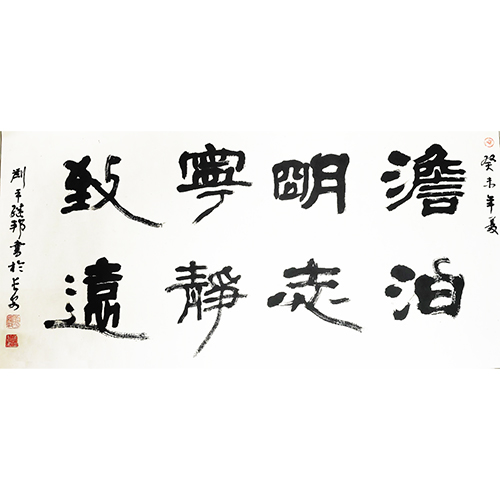 癸未年夏
澹泊
明志
寧靜
致遠
劉平繼邦書於长安